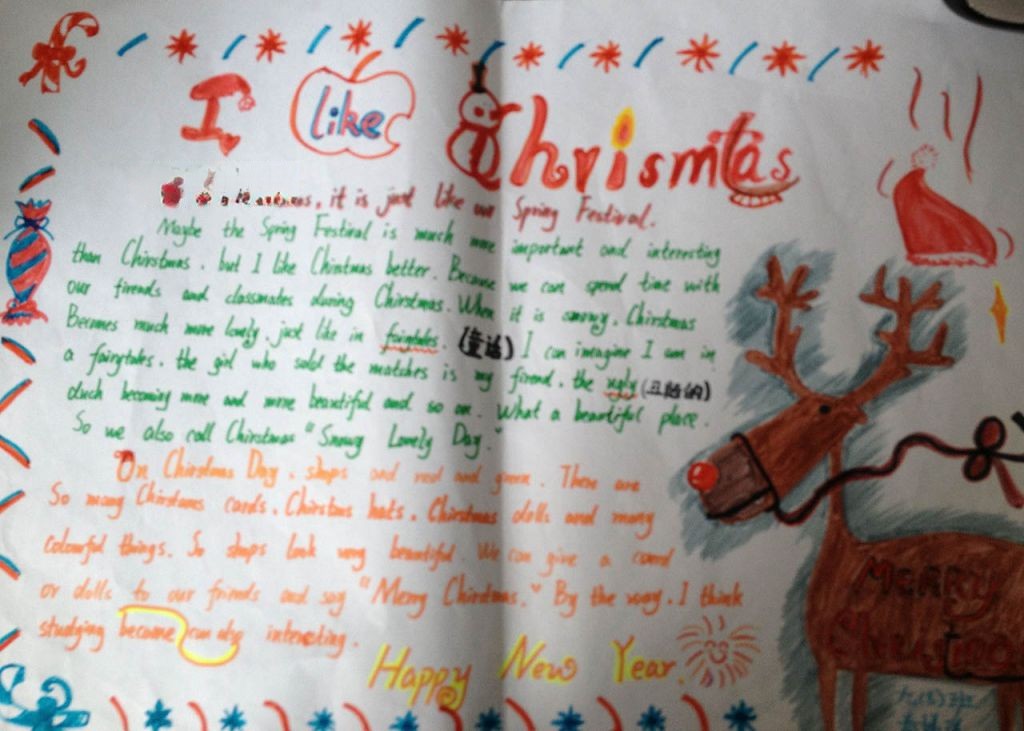 I like Chrismtas
, it is just like our Spring Festival.
Maybe the Spring Festival is much more important and interesting
than Chirstmas. but I like Chirstmas better. Because we can spend time with
our firends and classmates during Chirstmas. When it is snowy. Chirstmas
Becomes much more lovely. just like in fairytales. (童话) I can imagine I am in
a fairytales. the girl who sold the matches is my firend. the ugly (丑陋的)
duck becoming more and more beautiful and so on. What a beautiful place.
So we also call Chirstmas "Snowy Lovely Day.
On Chirstmas Day. shops and red and green. There are
So many Chirstams cards. Chirstms hats. Chirstmas dolls and many
colourful things. So shops look very beautiful. We can give a card
or dolls to our friends and say "Merry Chirstmas." By the way. I think
studying became can also interesting.
Happy New Year.
MERRY
Christmas